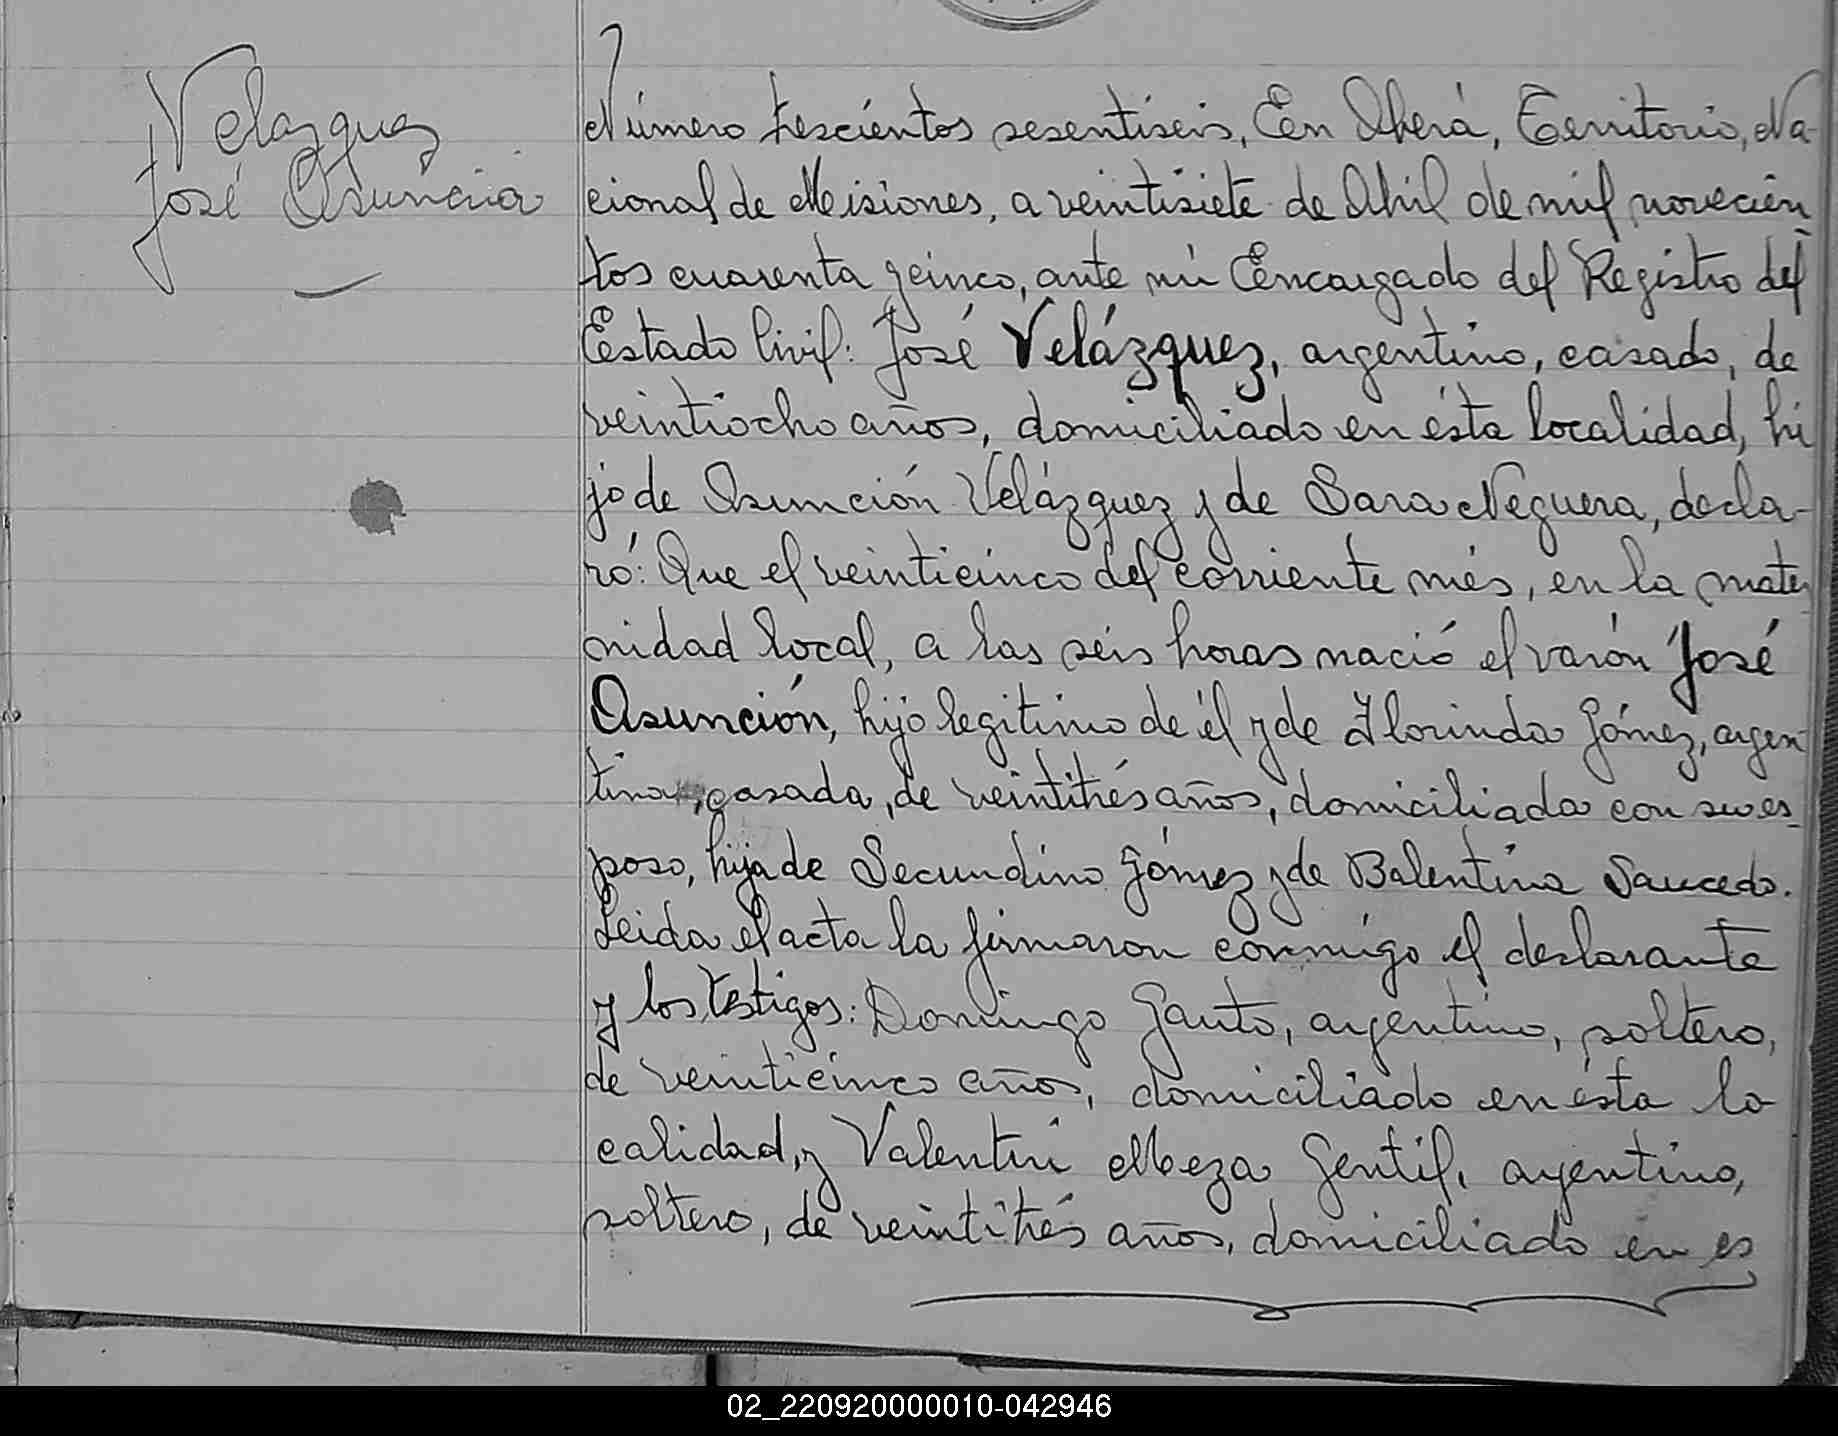 Velazquez
José Asunción
Número trescientos sesentiseis, En Oberá, Territorio, Na-
cional de Misiones, a veintisiete de Abril de mil novecien
tos cuarenta y cinco, ante mi Encargado del Registro del
Estado Civil: José Velázquez, argentino, casado, de
veintiocho años, domiciliado en ésta localidad, hi
jo de Asunción Velázquez y de Sara Neguera, decla-
ró: Que el veinticinco del corriente més, en la mater
nidad local, a las séis horas nació el varón José
Asunción, hijo legitimo de él y de Florinda Gómez, argen
tina, casada, de veintitrés años, domiciliada con su es-
poso, hija de Secundino Gómez y de Balentina Saucedo.
Leida el acta la firmaron conmigo el declarante
y los testigos: Domingo Gauto, argentino, soltero,
de veinticinco años, domiciliado en ésta lo
calidad, y Valentin Meza Gentil, argentino,
soltero, de veintitrés años, domiciliado en es
02_220920000010-042946